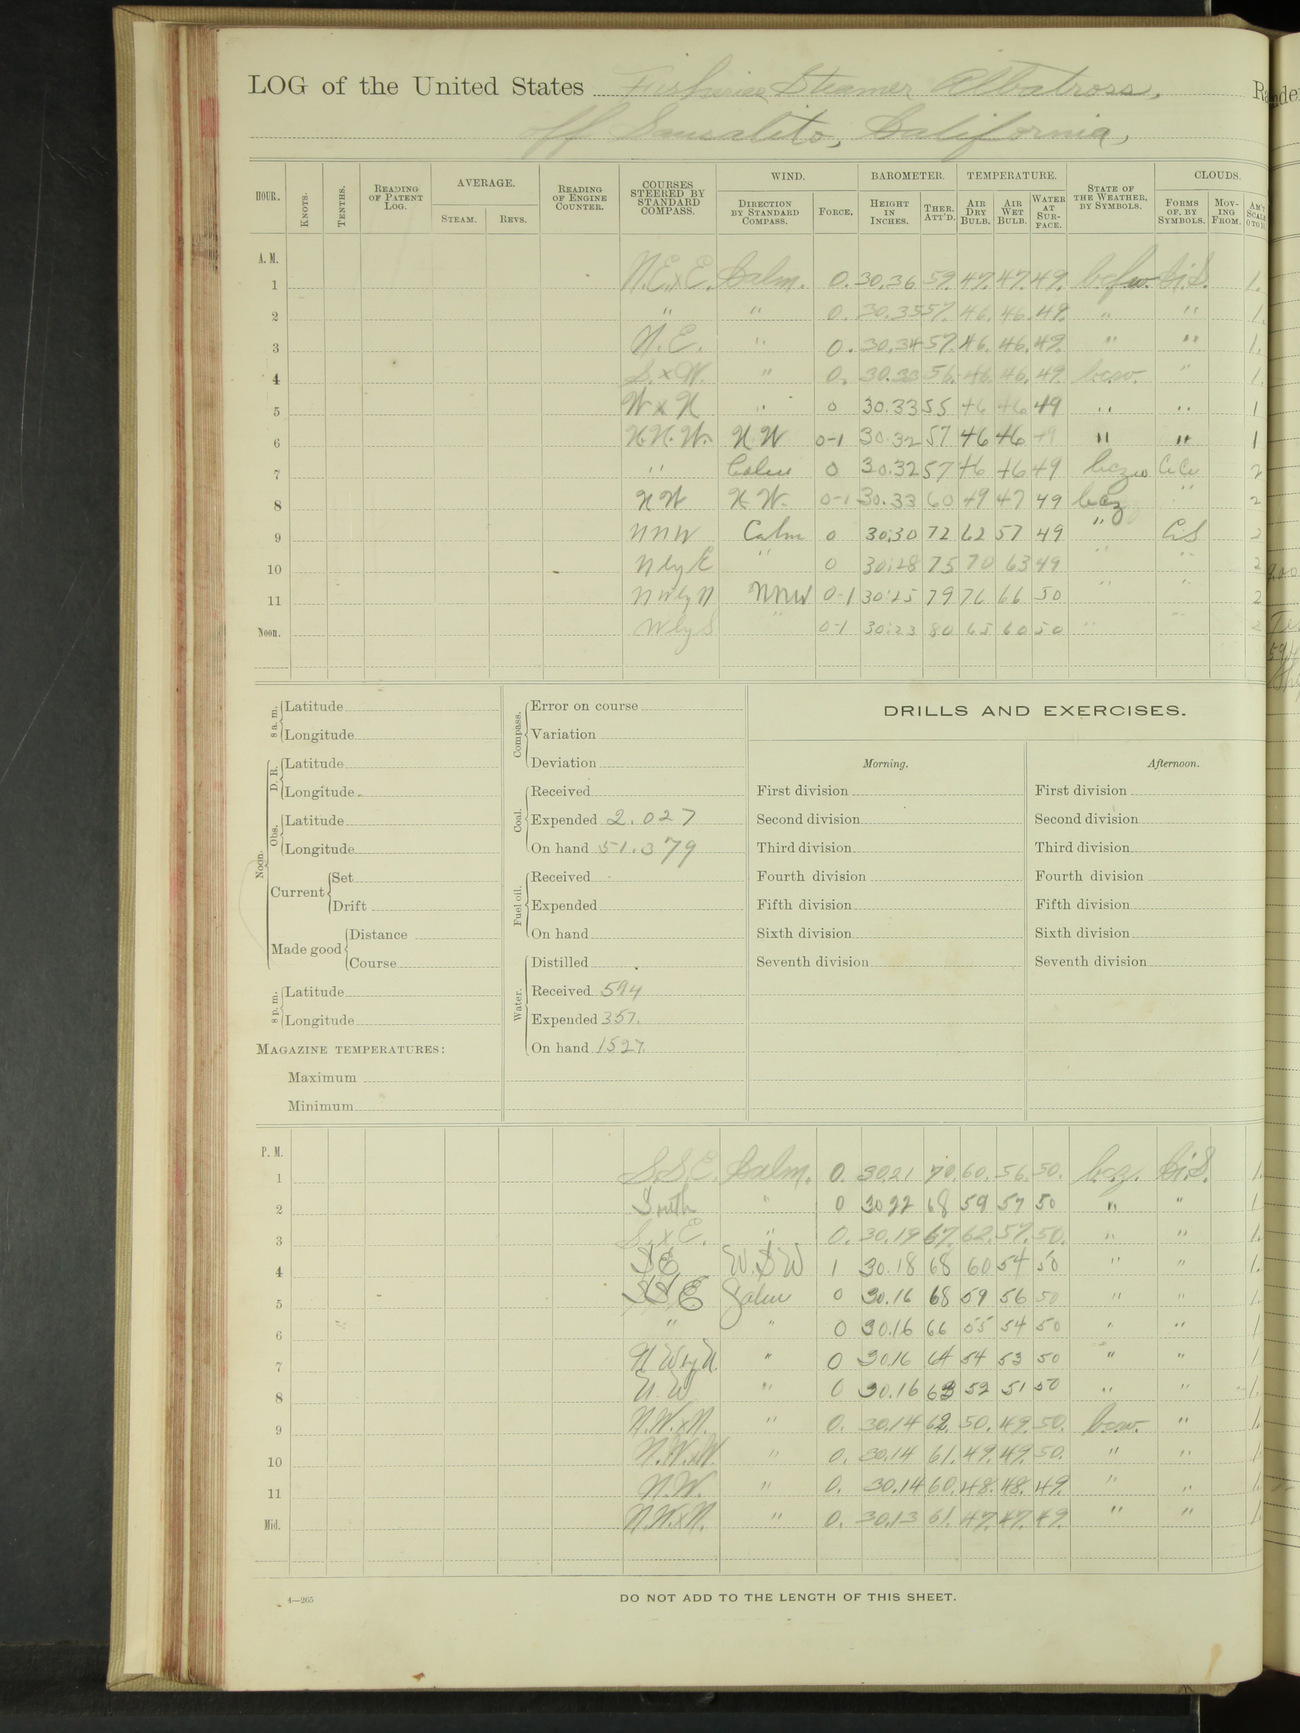 LOG of the United States Fisheries Steamer Albatross,
off Sausalito, California,
HOUR. KNOTS. TENTHS. READING OF PATENT LOG. AVERAGE. STEAM. REVS. READING OF ENGINE COUNTER. COURSES STEERED BY STANDARD COMPASS. WIND. DIRECTION BY STANDARD COMPASS. FORCE. BAROMETER. HEIGHT IN INCHES. THER. ATT'D. TEMPERATURE. AIR DRY BULB. AIR WET BULB. WATER AT SURFACE. STATE OF THE WEATHER, BY SYMBOLS. CLOUDS. FORMS OF, BY SYMBOLS. MOVING FROM. AM'T SCALE 0 TO 10
A. M.
1 N.E.xE. Calm. 0. 30.36 59. 47. 47. 49. bcfw. Ci.S. 1.
2 " " 0. 30.35 57. 46. 46. 49. " " 1.
3 N.E. " 0. 30.34 57. 46. 46. 49. " " 1.
4 S.xW. " 0. 30.33 56. 46. 46. 49. bcw. " 1.
5 W x N " 0 30.33 55 46 46 49 " " 1
6 N.N.W. N W 0-1 30.32 57 46 46 49 " " 1
7 " Calm 0 30.32 57 46 46 49 bczw CiCu 2
8 N W N W. 0-1 30.33 60 49 47 49 bcz " 2
9 NNW Calm 0 30.30 72 62 57 49 " CiS 2
10 N by E " 0 30.28 75 70 63 49 " " 2
11 NW by N NNW 0-1 30.25 79 76 66 50 " " 2
Noon. W by S " 0-1 30.23 80 65 60 50 " " 2
8 a. m. Latitude
Longitude
Noon. D. R. Latitude
Longitude
Obs. Latitude
Longitude
Current Set
Drift
Made good Distance
Course
8 p. m. Latitude
Longitude
MAGAZINE TEMPERATURES:
Maximum
Minimum
Compass. Error on course
Variation
Deviation
Coal. Received
Expended 2.027
On hand 51.379
Fuel oil. Received
Expended
On hand
Water. Distilled
Received 594
Expended 357.
On hand 1527.
DRILLS AND EXERCISES.
Morning. Afternoon.
First division First division
Second division Second division
Third division Third division
Fourth division Fourth division
Fifth division Fifth division
Sixth division Sixth division
Seventh division Seventh division
P. M.
1 S.S.E. Calm. 0. 30.21 70. 60. 56. 50. bcz. Ci.S. 1.
2 South " 0 30.22 68 59 57 50 " " 1
3 S.xE. " 0. 30.19 67. 62. 57. 50. " " 1.
4 SE W.SW 1 30.18 68 60 54 50 " " 1.
5 SSE Calm 0 30.16 68 59 56 50 " " 1.
6 " " 0 30.16 66 55 54 50 " " 1
7 N W by N " 0 30.16 64 54 53 50 " " 1
8 N W " 0 30.16 63 52 51 50 " " 1.
9 N.W.xN. " 0. 30.14 62. 50. 49. 50. bcw. " 1.
10 N.W.xW. " 0. 30.14 61. 49. 49. 50. " " 1.
11 N.W. " 0. 30.14 60. 48. 48. 49. " " 1.
Mid. N.W.xN. " 0. 30.13 61. 47. 47. 49. " " 1.
4—265
DO NOT ADD TO THE LENGTH OF THIS SHEET.